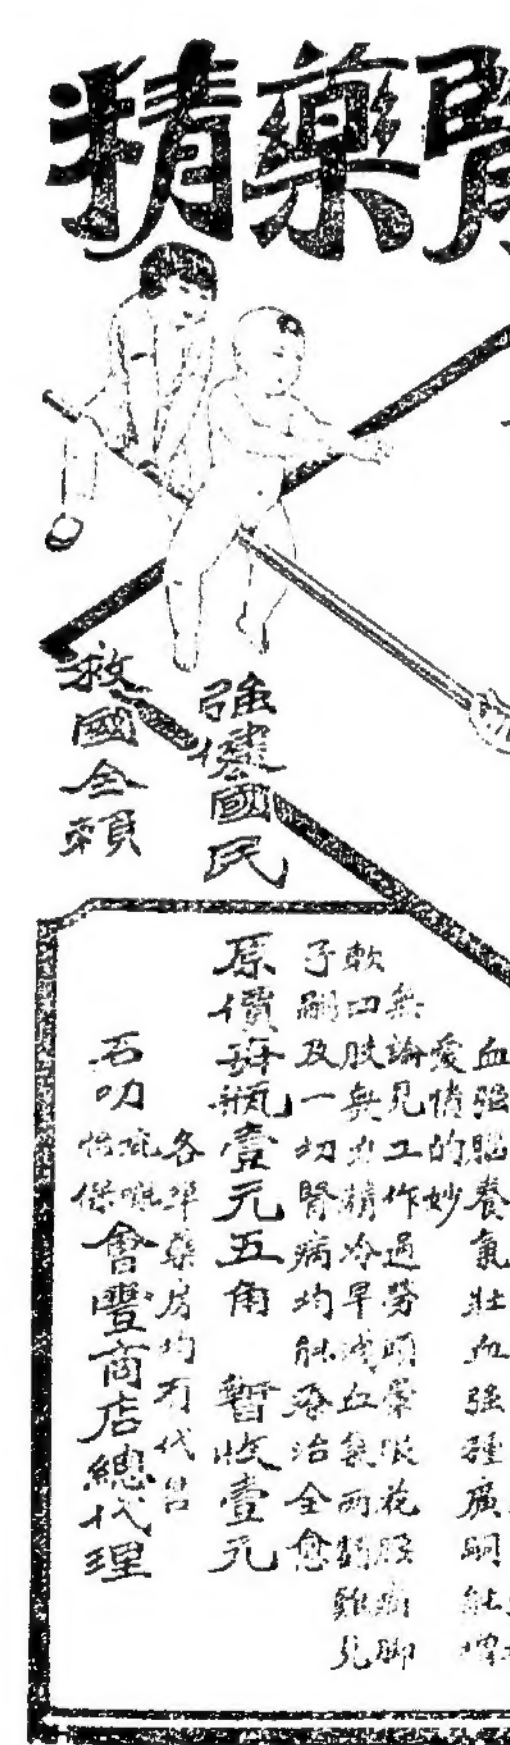 藥精
強健國民
救國全賴
血強腦養氣壯血強種廣嗣
愛情的妙
無論見工作過勞頭暈眼花腰痛脚
軟四肢無力精冷早洩血氣兩虧難見
子嗣及一切腎病均能療治全愈
原價每瓶壹元五角 暫收壹元
各埠藥房均有代售
石叻怡保會豐商店總代理